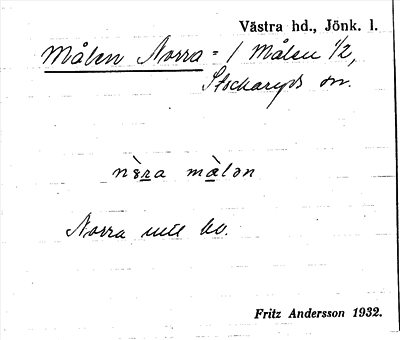 Västra hd., Jönk. l.
Målen Norra = 1 Målen 1/2,
Stockaryds sn.
nèra màlən
Norra mll bo.
Fritz Andersson 1932.